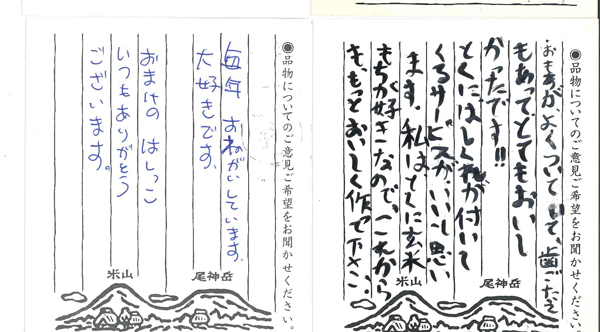 ●品物についてのご意見ご希望をお聞かせください。
おもちがよくついていて、歯ごたえ
もあってとてもおいし
かったです!!
とくにはしくれが付いて
くるサービスがいいと思い
ます。私はとくに玄米
もちが好きなので、これから
も、もっとおいしく作って下さい。
尾神岳
米山
●品物についてのご意見ご希望をお聞かせください。
毎年 おねがいしています。
大好きです。
おまけの はしっこ
いつもありがとう
ございます。
尾神岳
米山